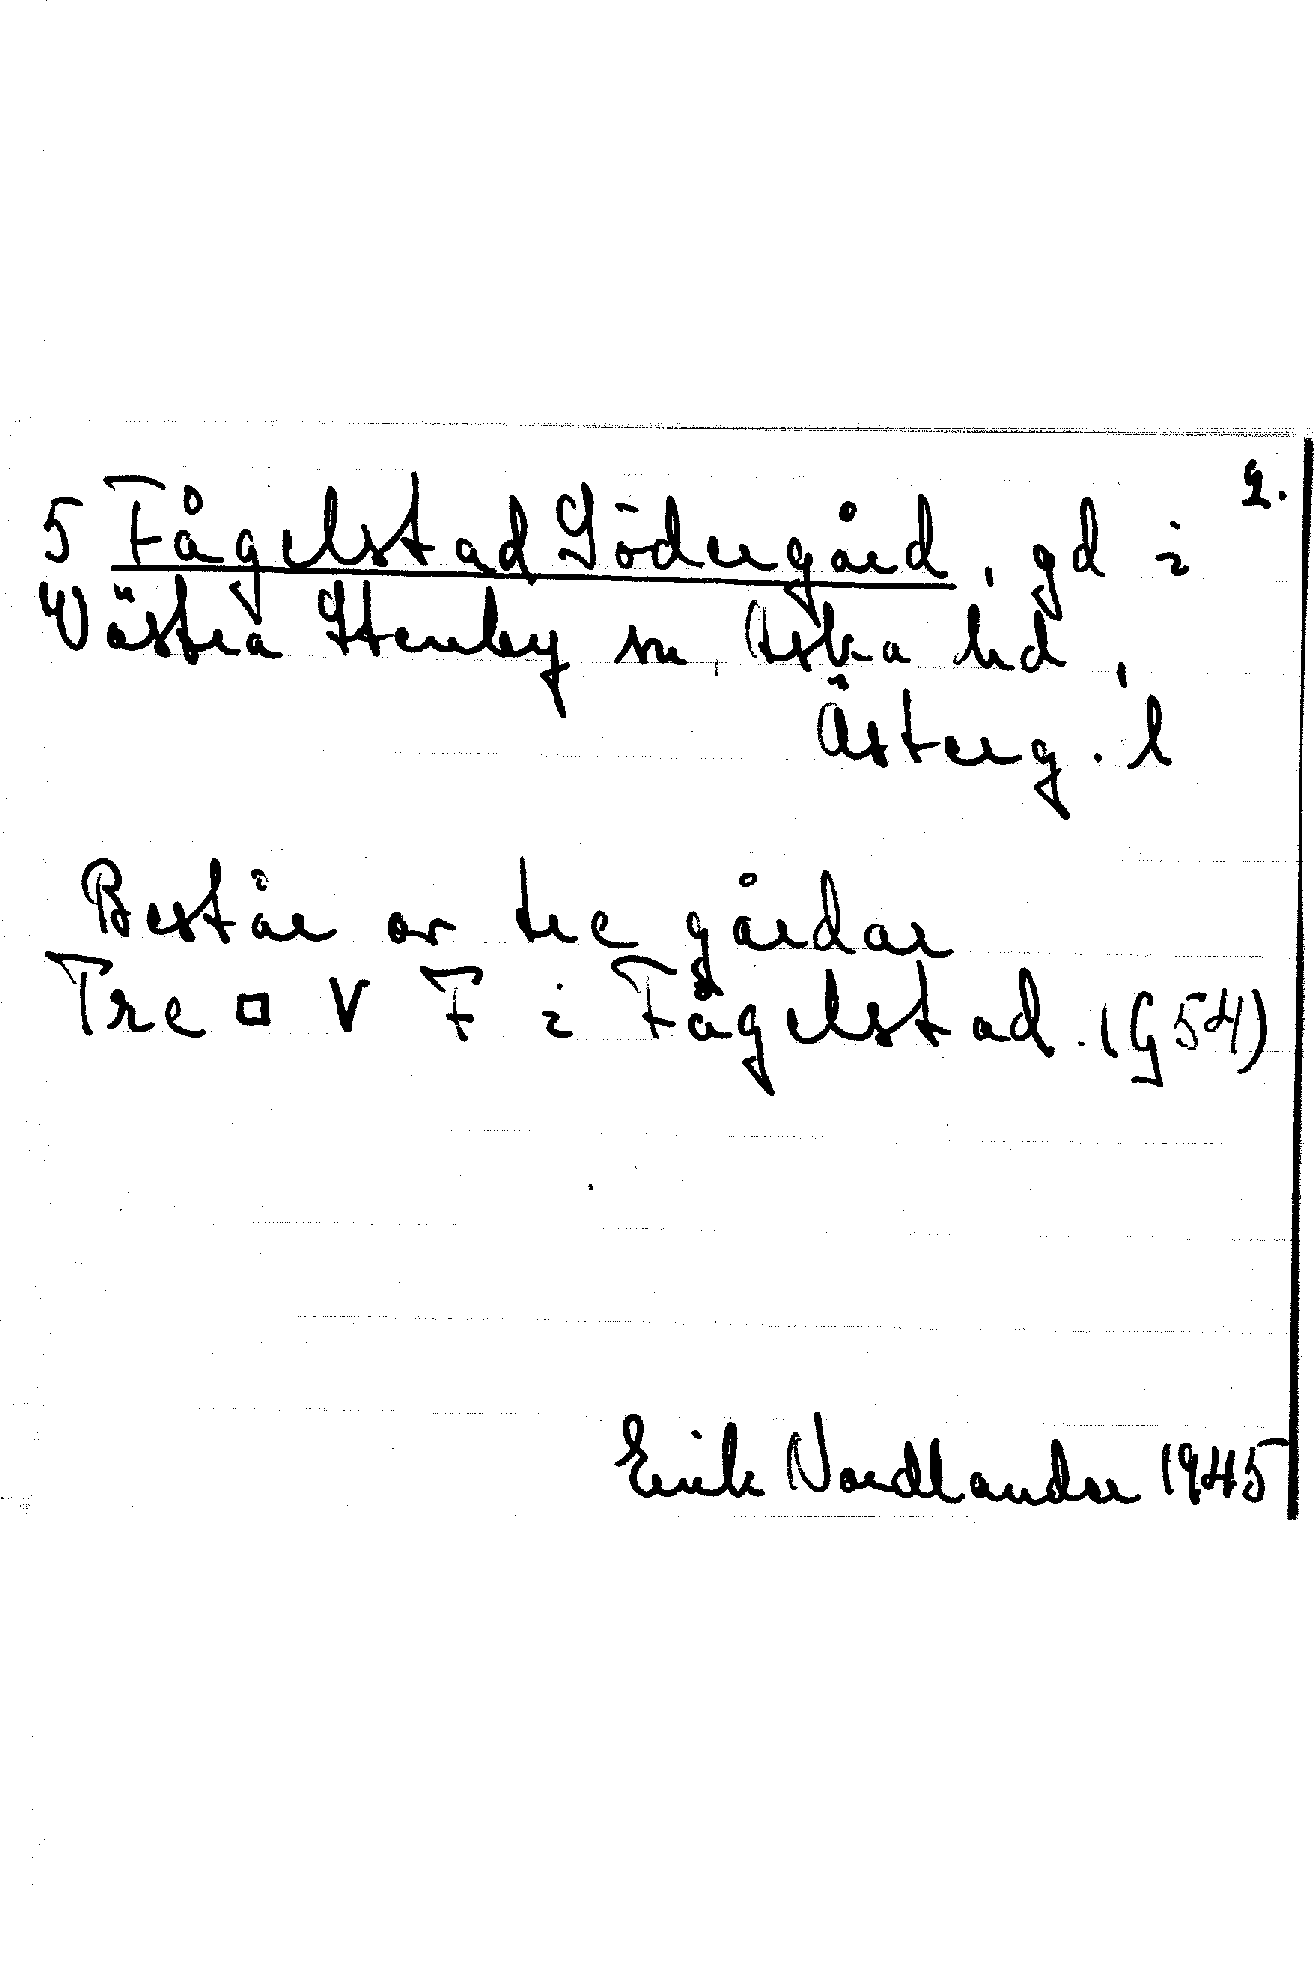 2.
5 Fågelstad Södergård, gd i
Västra Stenby sn, Aska hd,
Österg. l
Består av tre gårdar
Tre □ V F i Fågelstad. (G54)
Erik Nordlander 1945